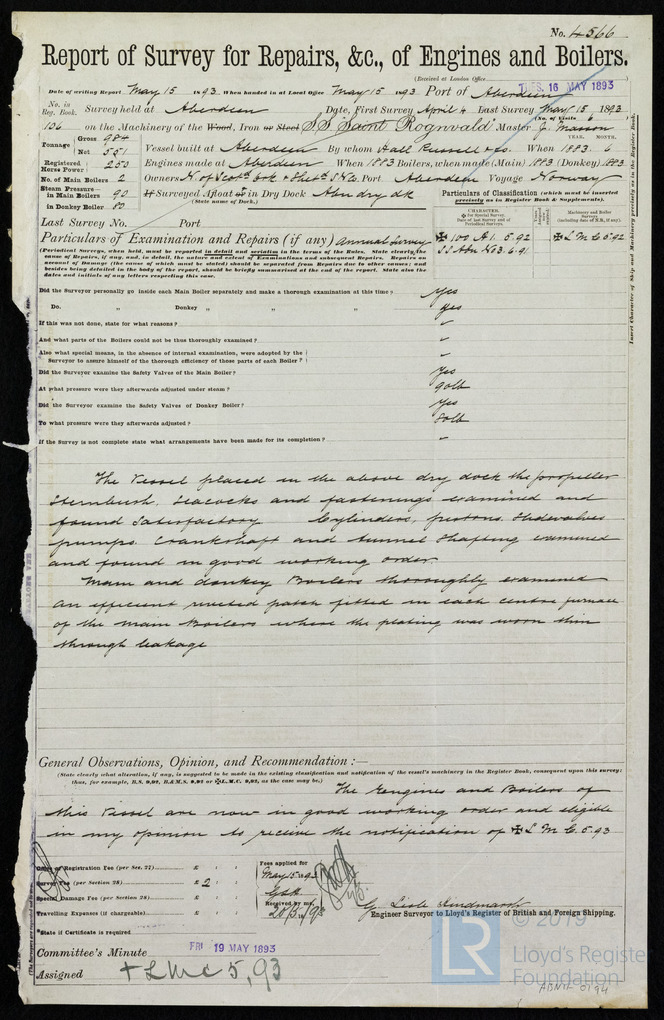 No. 4566
Report of Survey for Repairs, &c., of Engines and Boilers.
(Received at London Office
TUES. 16 MAY 1893
Date of writing Report May 15 1893. When handed in at Local Office May 15 1893 Port of Aberdeen
No. in Reg. Book. Survey held at Aberdeen Date, First Survey April 4 Last Survey May 15 1893
(No. of Visits 6
136 on the Machinery of the Wood, Iron or Steel S.S. "Saint Rognvald" Master J. Masson
Tonnage Gross 984
Net 551
Vessel built at Aberdeen By whom Hall Russell & Co. When 1883. 6
YEAR. MONTH.
Registered Horse Power 250 Engines made at Aberdeen When 1883 Boilers, when made (Main) 1883 (Donkey) 1883
No. of Main Boilers 2 Owners N of Scotd Ork & Shetd S N Co. Port Aberdeen Voyage Norway
Steam Pressure— in Main Boilers 90
in Donkey Boiler 80
If Surveyed Afloat or in Dry Dock Abn dry dk
(State name of Dock.)
Particulars of Classification (which must be inserted precisely as in Register Book & Supplements).
Last Survey No. Port
CHARACTER.
Machinery and Boiler Surveys (including date of N.B., if any).
Particulars of Examination and Repairs (if any) Annual Survey
✠ 100 A1. 5.92
S.S. Abn No 3. 6.91
✠ L M C 5.92
(Periodical Surveys, when held, must be reported in detail and seriatim in the terms of the Rules. State clearly the cause of Repairs, if any, and, in detail, the nature and extent of Examinations and subsequent Repairs. Repairs on account of Damage (the cause of which must be stated) should be separated from Repairs due to other causes; and besides being detailed in the body of the report, should be briefly summarised at the end of the report. State also the dates and initials of any letters respecting this case.
Insert Character of Ship and Machinery precisely as in the Register Book.
Did the Surveyor personally go inside each Main Boiler separately and make a thorough examination at this time? Yes
Do. „ Donkey „ „ „ Yes
If this was not done, state for what reasons?
And what parts of the Boilers could not be thus thoroughly examined?
Also what special means, in the absence of internal examination, were adopted by the
Surveyor to assure himself of the thorough efficiency of those parts of each Boiler?
Did the Surveyor examine the Safety Valves of the Main Boiler? Yes
At what pressure were they afterwards adjusted under steam? 90lb
Did the Surveyor examine the Safety Valves of Donkey Boiler? Yes
To what pressure were they afterwards adjusted? 80lb
If the Survey is not complete state what arrangements have been made for its completion?
The Vessel placed in the above dry dock the propeller
Sternbush, Seacocks and fastenings examined and
found Satisfactory Cylinders, pistons Slidevalves
pumps Crankshaft and tunnel Shafting examined
and found in good working order.
Main and donkey Boilers thoroughly examined
An efficient riveted patch fitted in each centre furnace
of the main boilers where the plating was worn thin
through leakage
General Observations, Opinion, and Recommendation:—
(State clearly what alteration, if any, is suggested to be made in the existing classification and notification of the vessel's machinery in the Register Book, consequent upon this survey:
thus, for example, B.S. 9,92, B.&M.S. 9,92 or ✠L.M.C. 9,92, as the case may be.)
The Engines and Boilers of
this Vessel are now in good working order and eligible
in my opinion to receive the notification of ✠ L M C. 5.93
Office or Registration Fee (per Sec. 27) £ : :
Survey Fee (per Section 28) £ 2 : :
Special Damage Fee (per Section 28) £ : :
Travelling Expenses (if chargeable) £ : :
Fees applied for
May 15 1893
Received by me,
20/5/93
Engineer Surveyor to Lloyd's Register of British and Foreign Shipping.
*State if Certificate is required
Committee's Minute FRI 19 MAY 1893
Assigned + LMC 5,93
© 2019
LR
Lloyd's Register
Foundation
ABN12 0194